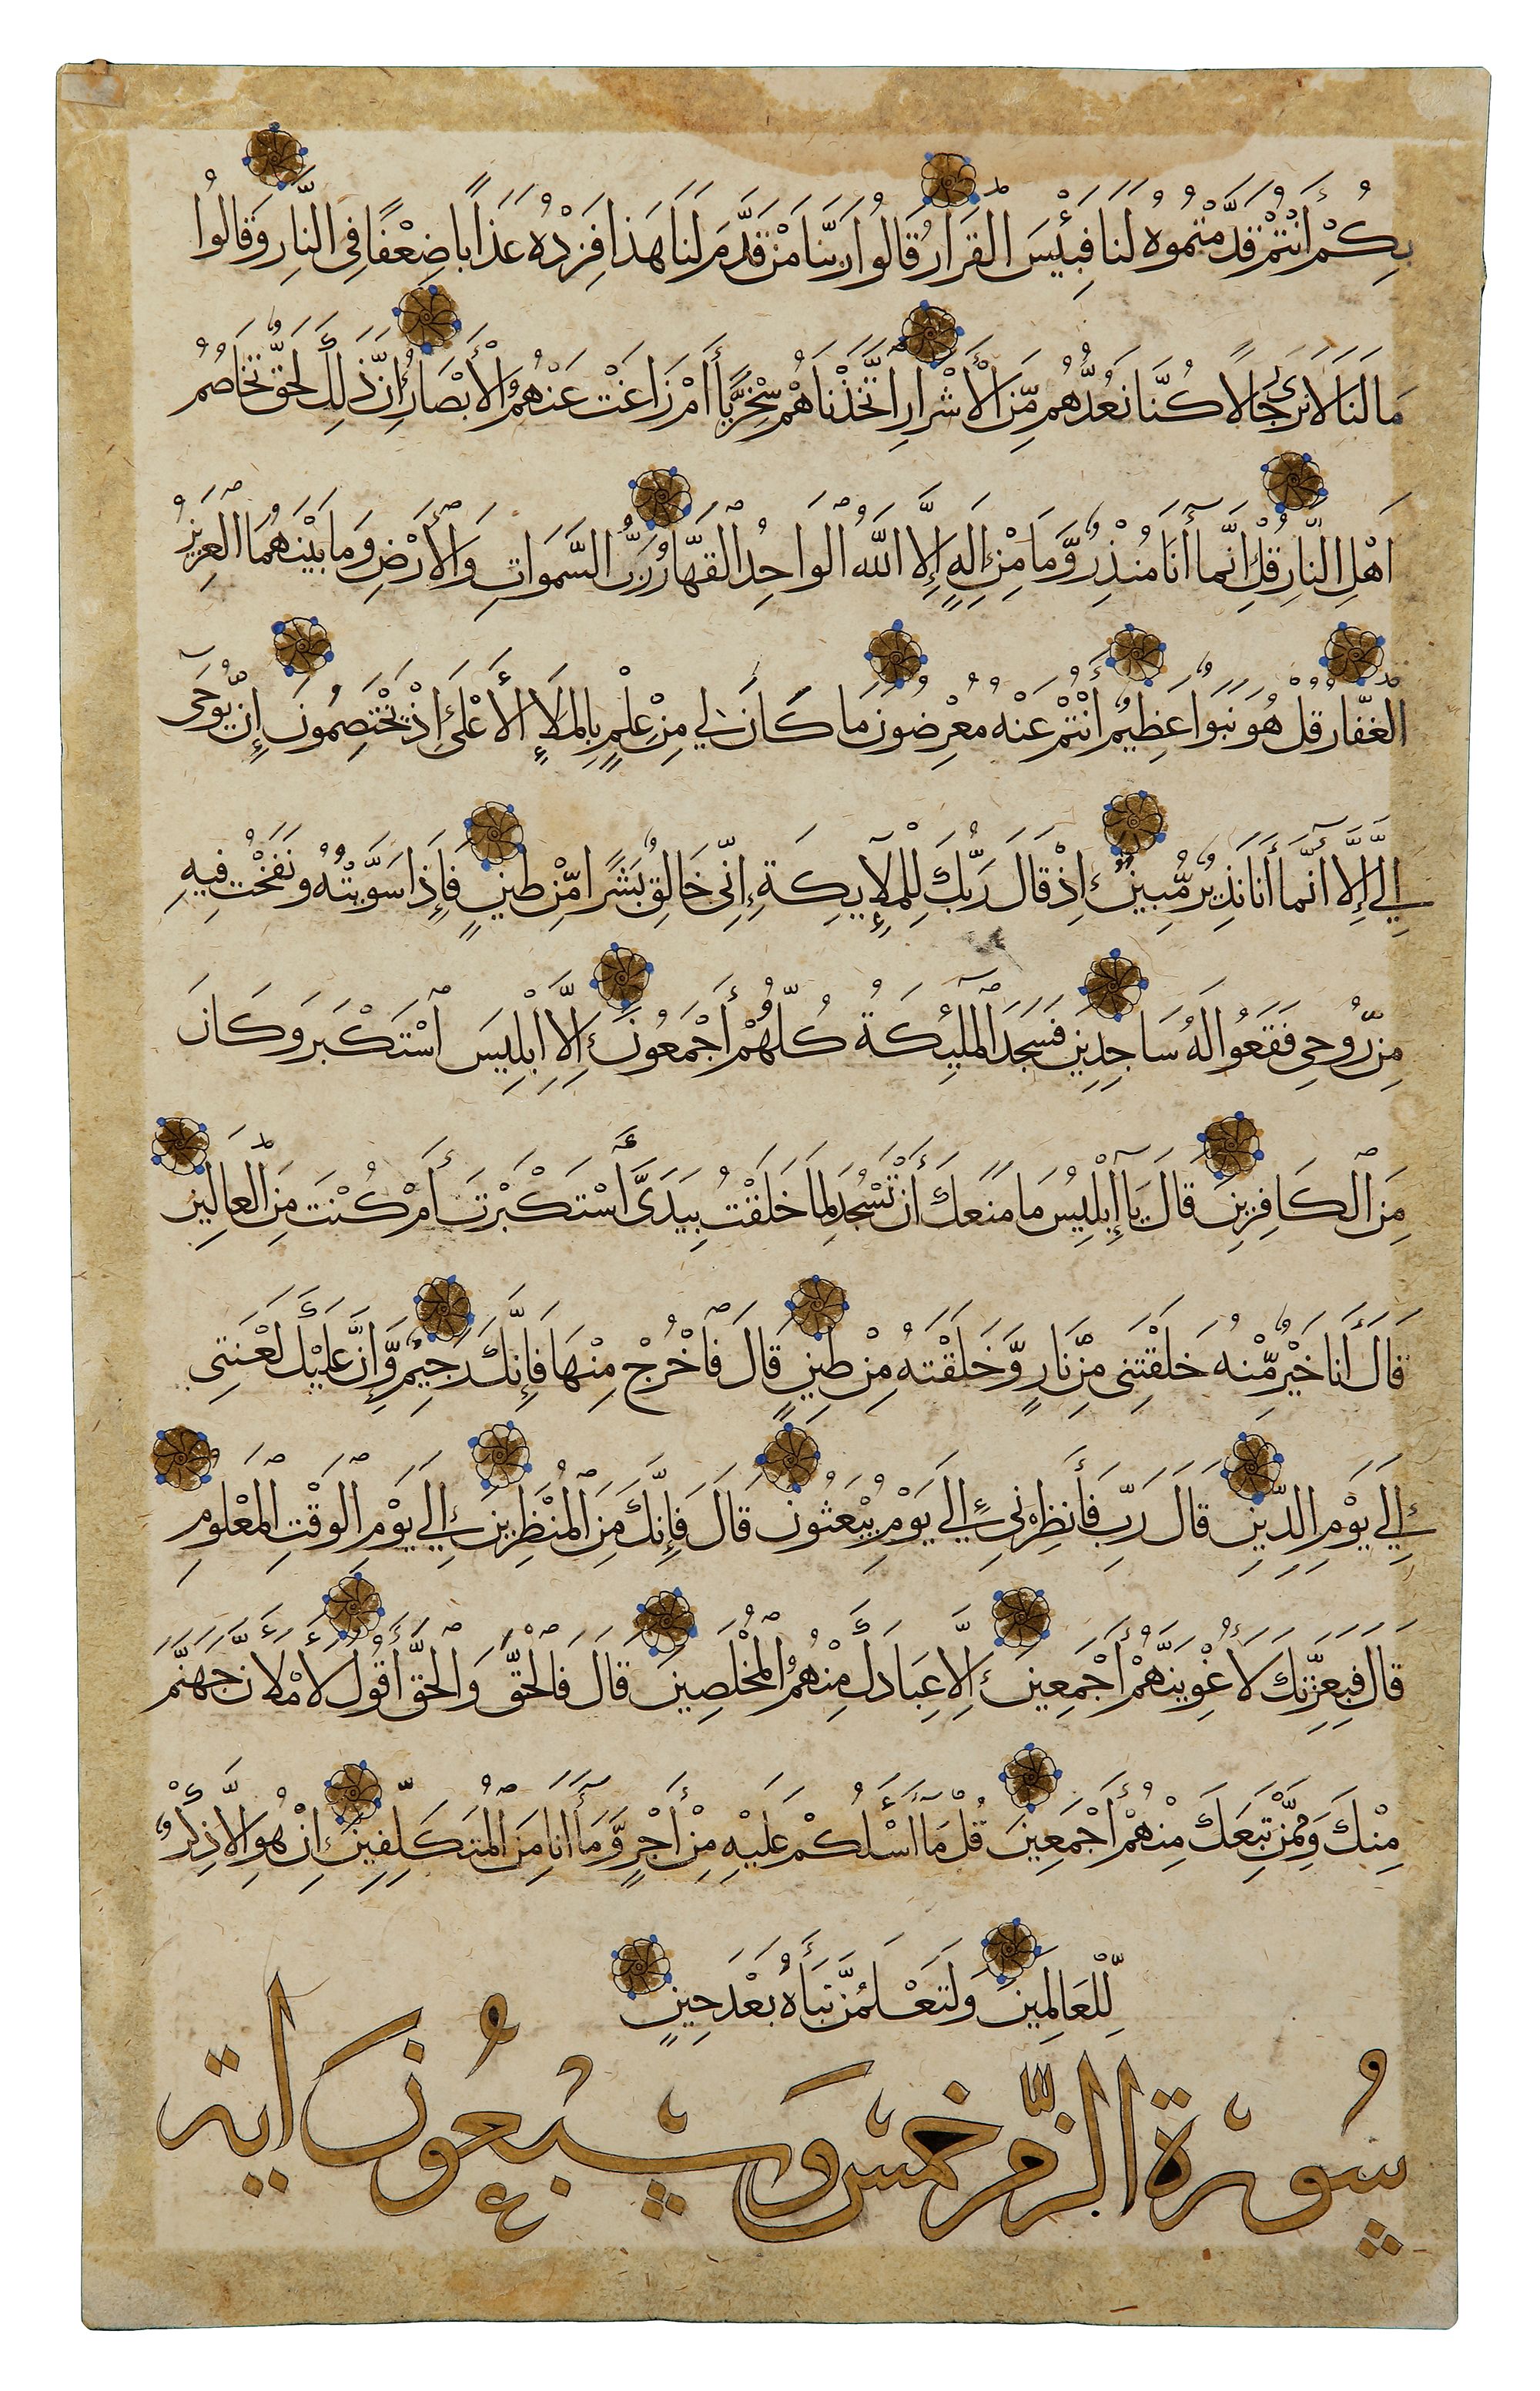 بِكُمْ أَنْتُمْ قَدَّمْتُمُوهُ لَنَا فَبِئْسَ الْقَرَارُ قَالُوا رَبَّنَا مَنْ قَدَّمَ لَنَا هَذَا فَزِدْهُ عَذَابًا ضِعْفًا فِي النَّارِ وَقَالُوا
مَا لَنَا لَا نَرَى رِجَالًا كُنَّا نَعُدُّهُم مِّنَ الْأَشْرَارِ اتَّخَذْنَاهُمْ سِخْرِيًّا أَمْ زَاغَتْ عَنْهُمُ الْأَبْصَارُ إِنَّ ذَلِكَ لَحَقٌّ تَخَاصُمُ
أَهْلِ النَّارِ قُلْ إِنَّمَا أَنَا مُنْذِرٌ وَّمَا مِنْ إِلَهٍ إِلَّا اللَّهُ الْوَاحِدُ الْقَهَّارُ رَبُّ السَّمَوَاتِ وَالْأَرْضِ وَمَا بَيْنَهُمَا الْعَزِيزُ
الْغَفَّارُ قُلْ هُوَ نَبَؤٌا عَظِيمٌ أَنْتُمْ عَنْهُ مُعْرِضُونَ مَا كَانَ لِي مِنْ عِلْمٍ بِالْمَلَإِ الْأَعْلَى إِذْ يَخْتَصِمُونَ إِنْ يُّوحَى
إِلَيَّ إِلَّا أَنَّمَا أَنَا نَذِيرٌ مُّبِينٌ إِذْ قَالَ رَبُّكَ لِلْمَلَآيِكَةِ إِنِّي خَالِقٌ بَشَرًا مِّنْ طِينٍ فَإِذَا سَوَّيْتُهُ وَنَفَخْتُ فِيهِ
مِن رُّوحِي فَقَعُوا لَهُ سَاجِدِينَ فَسَجَدَ الْمَلَٰئِكَةُ كُلُّهُمْ أَجْمَعُونَ إِلَّا إِبْلِيسَ اسْتَكْبَرَ وَكَانَ
مِنَ الْكَافِرِينَ قَالَ يَا إِبْلِيسُ مَا مَنَعَكَ أَنْ تَسْجُدَ لِمَا خَلَقْتُ بِيَدَيَّ أَسْتَكْبَرْتَ أَمْ كُنْتَ مِنَ الْعَالِينَ
قَالَ أَنَا خَيْرٌ مِّنْهُ خَلَقْتَنِي مِنْ نَّارٍ وَّخَلَقْتَهُ مِنْ طِينٍ قَالَ فَاخْرُجْ مِنْهَا فَإِنَّكَ رَجِيمٌ وَّإِنَّ عَلَيْكَ لَعْنَتِي
إِلَى يَوْمِ الدِّينِ قَالَ رَبِّ فَأَنظِرْنِي إِلَى يَوْمِ يُبْعَثُونَ قَالَ فَإِنَّكَ مِنَ الْمُنْظَرِينَ إِلَى يَوْمِ الْوَقْتِ الْمَعْلُومِ
قَالَ فَبِعِزَّتِكَ لَأُغْوِيَنَّهُمْ أَجْمَعِينَ إِلَّا عِبَادَكَ مِنْهُمُ الْمُخْلَصِينَ قَالَ فَالْحَقُّ وَالْحَقَّ أَقُولُ لَأَمْلَأَنَّ جَهَنَّمَ
مِنْكَ وَمِمَّنْ تَبِعَكَ مِنْهُمْ أَجْمَعِينَ قُلْ مَا أَسْأَلُكُمْ عَلَيْهِ مِنْ أَجْرٍ وَّمَا أَنَا مِنَ الْمُتَكَلِّفِينَ إِنْ هُوَ إِلَّا ذِكْرٌ
لِّلْعَالَمِينَ وَلَتَعْلَمُنَّ نَبَأَهُ بَعْدَ حِينٍ
سُورَة الزّمر خمس وَسبْعُونَ اية